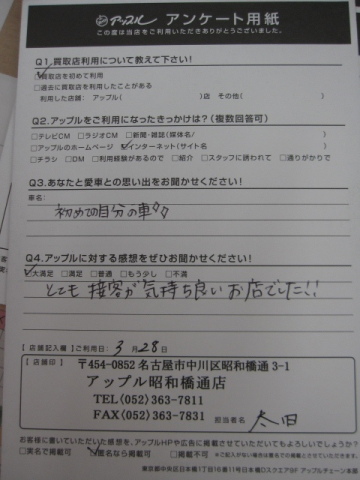 アップル アンケート用紙
この度は当店をご利用いただきありがとうございました。
Q1.買取店利用について教えて下さい!
☑買取店を初めて利用
□過去に買取店を利用したことがある
利用した店舗: アップル( )店 その他( )
Q2.アップルをご利用になったきっかけは?(複数回答可)
□テレビCM □ラジオCM □新聞・雑誌(媒体名/ )
□アップルのホームページ ☑インターネット(サイト名 )
□チラシ □DM □利用経験があるので □紹介 □スタッフに誘われて □通りがかりで
Q3.あなたと愛車との思い出をお聞かせください!
車名:
初めての自分の車
Q4.アップルに対する感想をぜひお聞かせください!
☑大満足 □満足 □普通 □もう少し □不満
とても接客が気持ち良いお店でした!!
【店舗記入欄】ご利用日: 3月28日
【店舗印】
〒454-0852 名古屋市中川区昭和橋通3-1
アップル昭和橋通店
TEL(052)363-7811
FAX(052)363-7831
担当者名 太田
お客様に書いていただいた感想を、アップルHPや広告に掲載させていただいてもよろしいでしょうか?
□実名で掲載可 ☑匿名なら掲載可 □掲載不可 ※ご記入がない場合は匿名での掲載とさせていただきます。
東京都中央区日本橋1丁目16番11号日本橋Dスクエア8F アップルチェーン本部